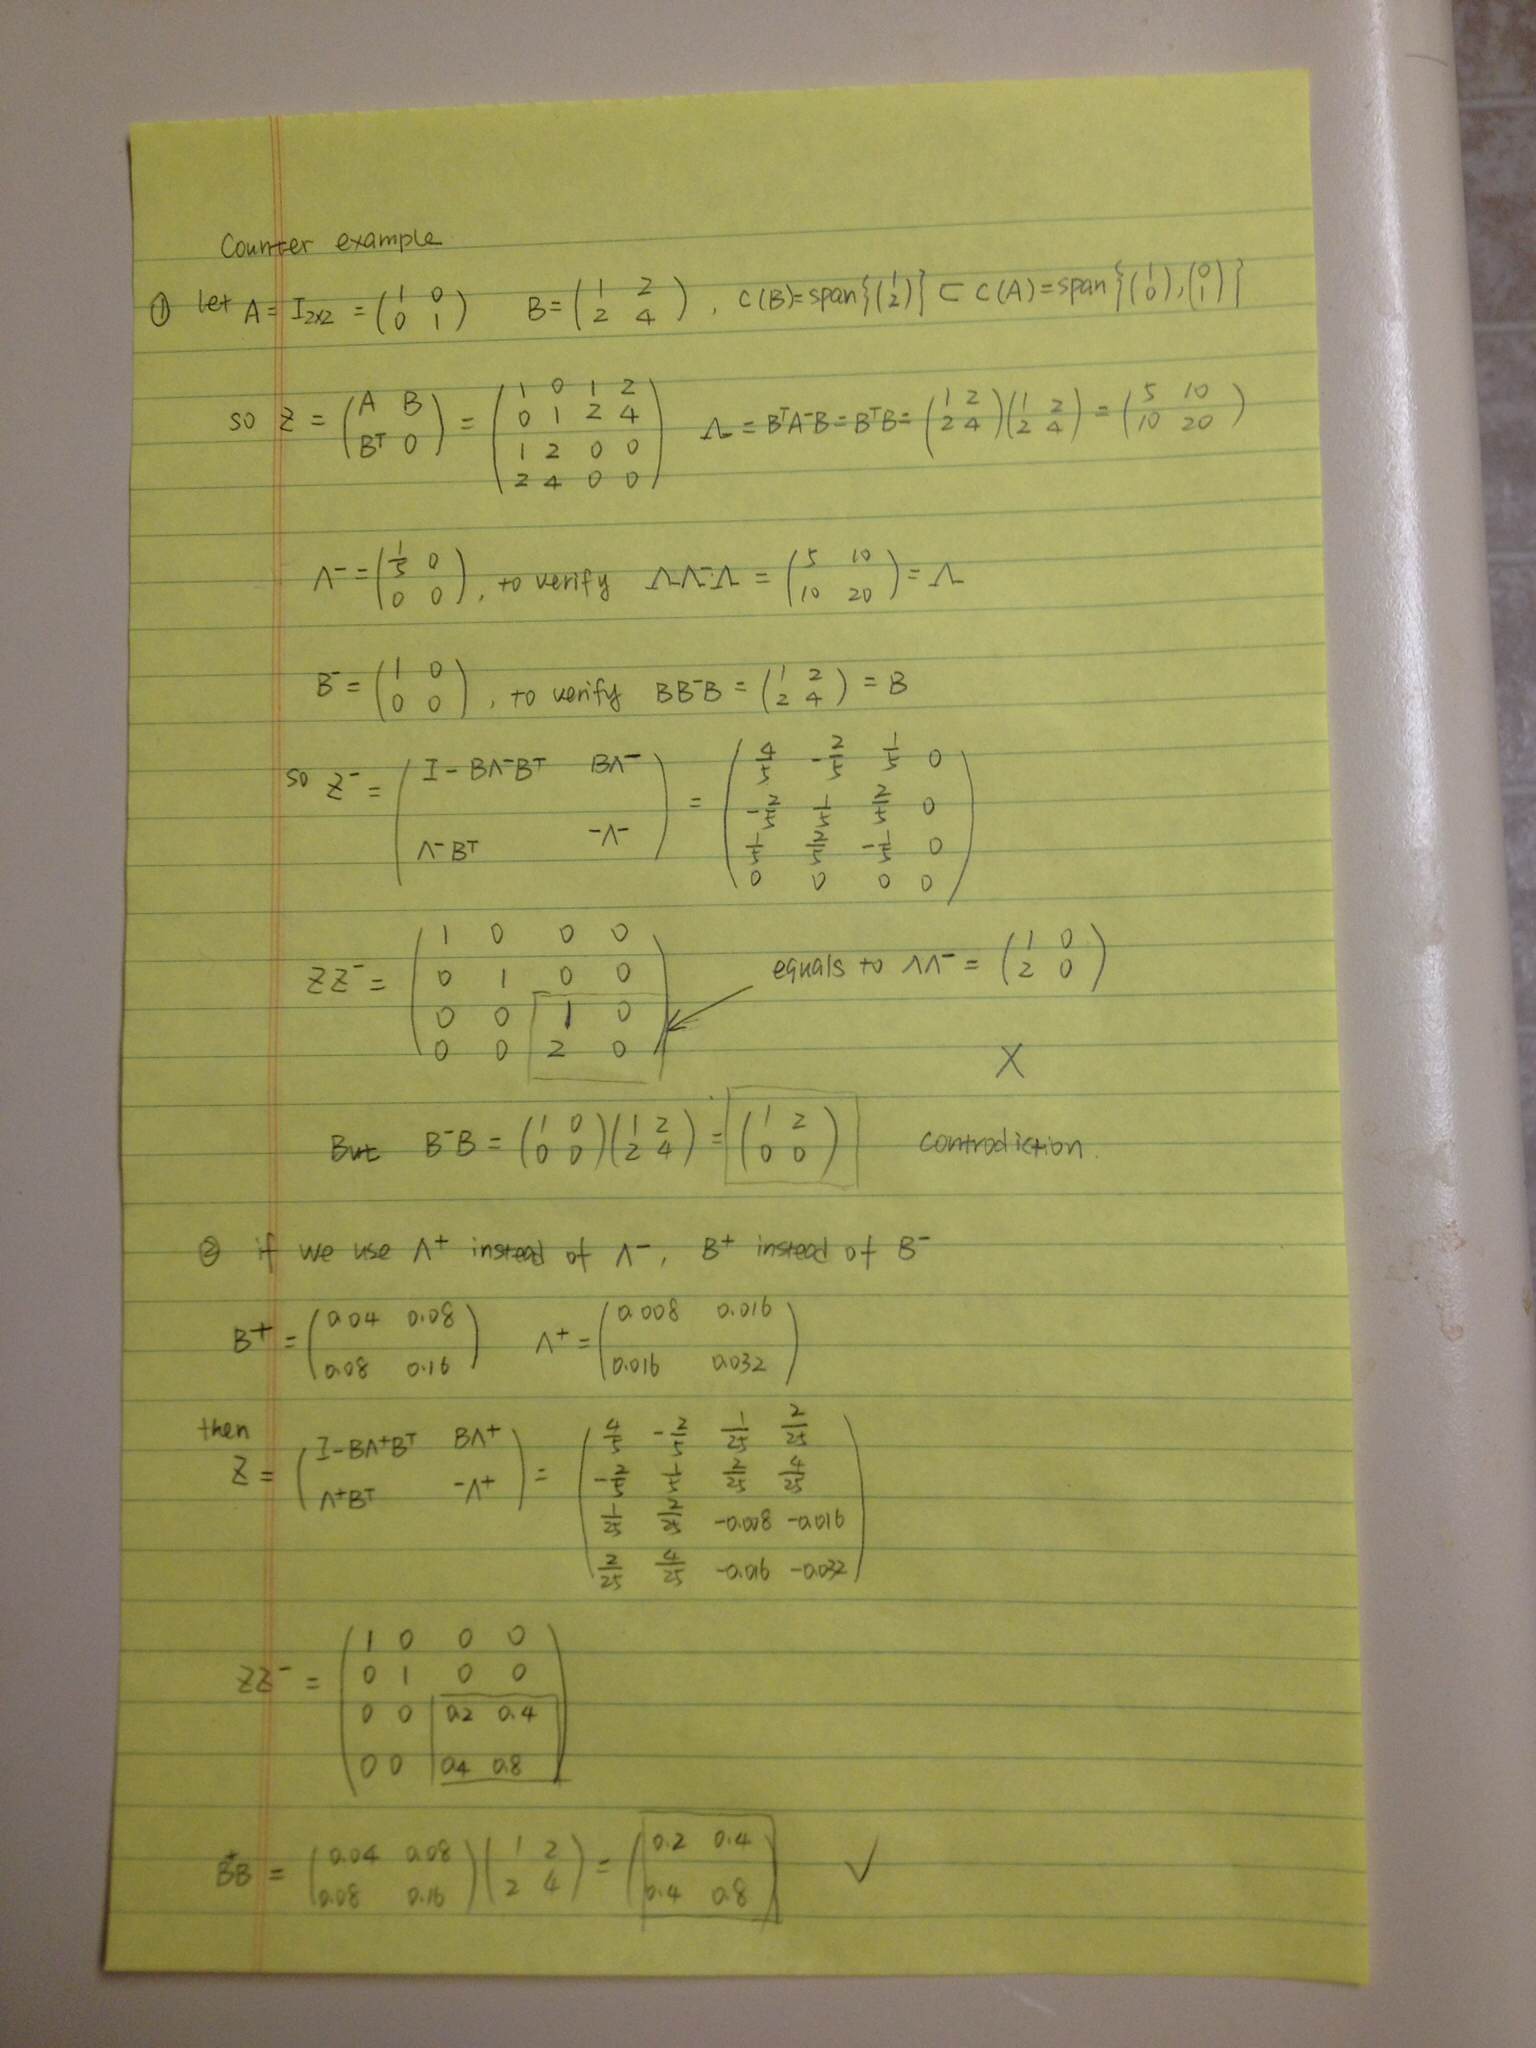 Counter example
① let A = I₂ₓ₂ = (1 0; 0 1) B = (1 2; 2 4), C(B) = span{(1; 2)} ⊂ C(A) = span{(1; 0), (0; 1)}
so Z = (A B; Bᵀ 0) = (1 0 1 2; 0 1 2 4; 1 2 0 0; 2 4 0 0) Λ = BᵀA⁻B = BᵀB = (1 2; 2 4)(1 2; 2 4) = (5 10; 10 20)
Λ⁻ = (1/5 0; 0 0), to verify ΛΛ⁻Λ = (5 10; 10 20) = Λ
B⁻ = (1 0; 0 0), to verify BB⁻B = (1 2; 2 4) = B
so Z⁻ = (I - BΛ⁻Bᵀ BΛ⁻; Λ⁻Bᵀ -Λ⁻) = (4/5 -2/5 1/5 0; -2/5 1/5 2/5 0; 1/5 2/5 -1/5 0; 0 0 0 0)
ZZ⁻ = (1 0 0 0; 0 1 0 0; 0 0 1 0; 0 0 2 0) equals to ΛΛ⁻ = (1 0; 2 0)
X
But B⁻B = (1 0; 0 0)(1 2; 2 4) = (1 2; 0 0) controdiction.
② if we use Λ⁺ instead of Λ⁻, B⁺ instead of B⁻
B⁺ = (0.04 0.08; 0.08 0.16) Λ⁺ = (0.008 0.016; 0.016 0.032)
then
Z = (I - BΛ⁺Bᵀ BΛ⁺; Λ⁺Bᵀ -Λ⁺) = (4/5 -2/5 1/25 2/25; -2/5 1/5 2/25 4/25; 1/25 2/25 -0.008 -0.016; 2/25 4/25 -0.016 -0.032)
ZZ⁻ = (1 0 0 0; 0 1 0 0; 0 0 0.2 0.4; 0 0 0.4 0.8)
B⁺B = (0.04 0.08; 0.08 0.16)(1 2; 2 4) = (0.2 0.4; 0.4 0.8) ✓